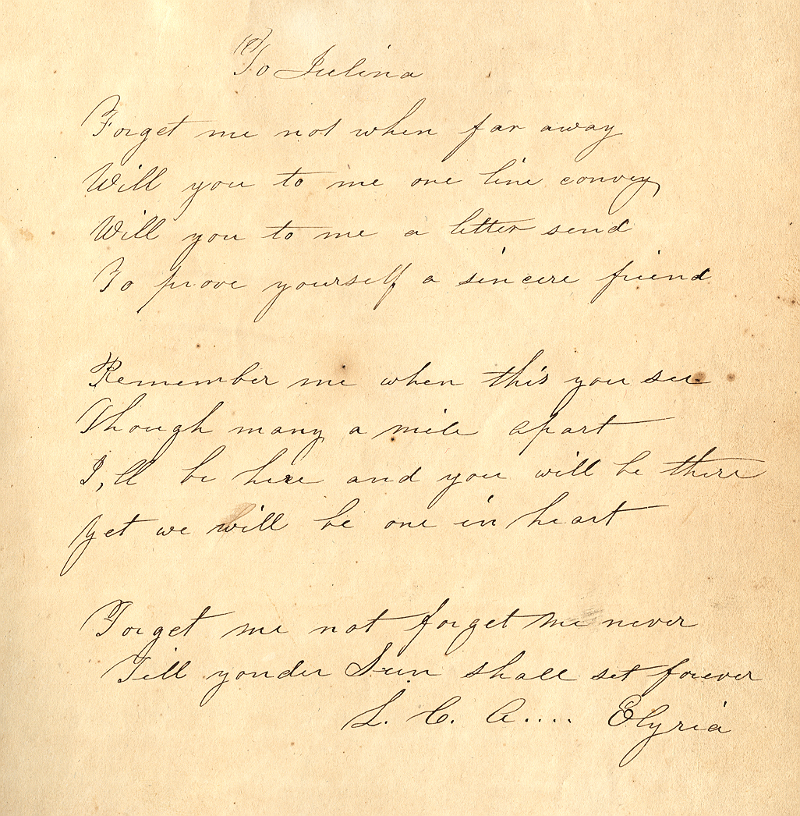 To Julina
Forget me not when far away
Will you to me one line convey
Will you to me a letter send
To prove yourself a sincere friend
Remember me when this you see
Though many a mile apart
I,ll be here and you will be there
Yet we will be one in heart
Forget me not forget me never
Till yonder Sun shall set forever
L. C. A.... Elyria